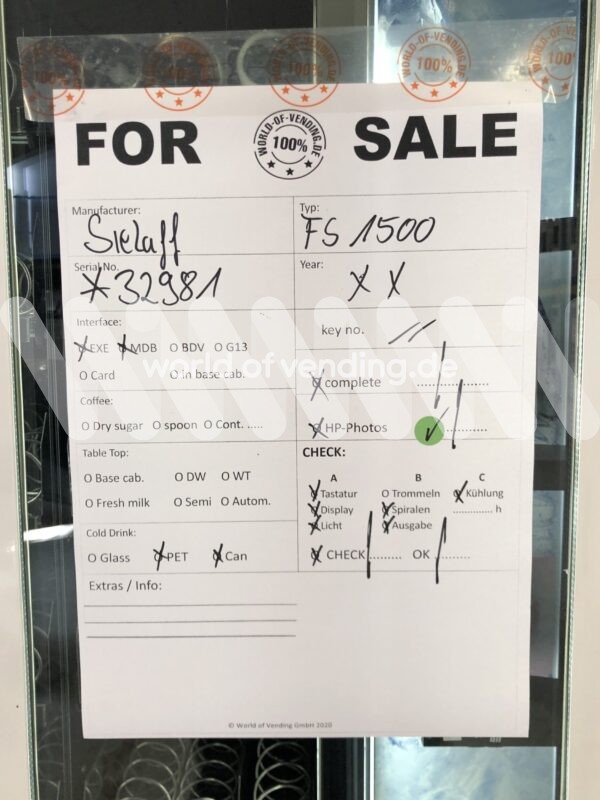 WORLD-OF-VENDING.DE 100%
WORLD-OF-VENDING.DE 100%
WORLD-OF-VENDING.DE 100%
FOR WORLD-OF-VENDING.DE 100% SALE
Manufacturer: Typ:
Sielaff FS 1500
Serial No. Year:
*32981 XX
Interface: key no.
EXE MDB O BDV O G13
world of vending.de
O Card O in base cab. complete
Coffee:
O Dry sugar O spoon O Cont. ..... HP-Photos ✓
Table Top: CHECK:
A B C
O Base cab. O DW O WT Tastatur O Trommeln Kühlung
Display Spiralen ............. h
O Fresh milk O Semi O Autom. Licht Ausgabe
Cold Drink:
O Glass PET Can CHECK OK
Extras / Info:
© World of Vending GmbH 2020